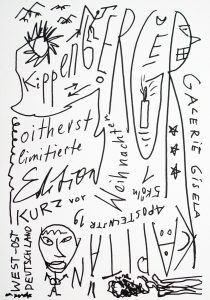 Kippenberger
limitierte
Edition
KURZ vor
Weihnachten
APOSTELNSTR 19
5 Köln 1
GALERIE GISELA
WEST-OST
DEUTSCHLAND